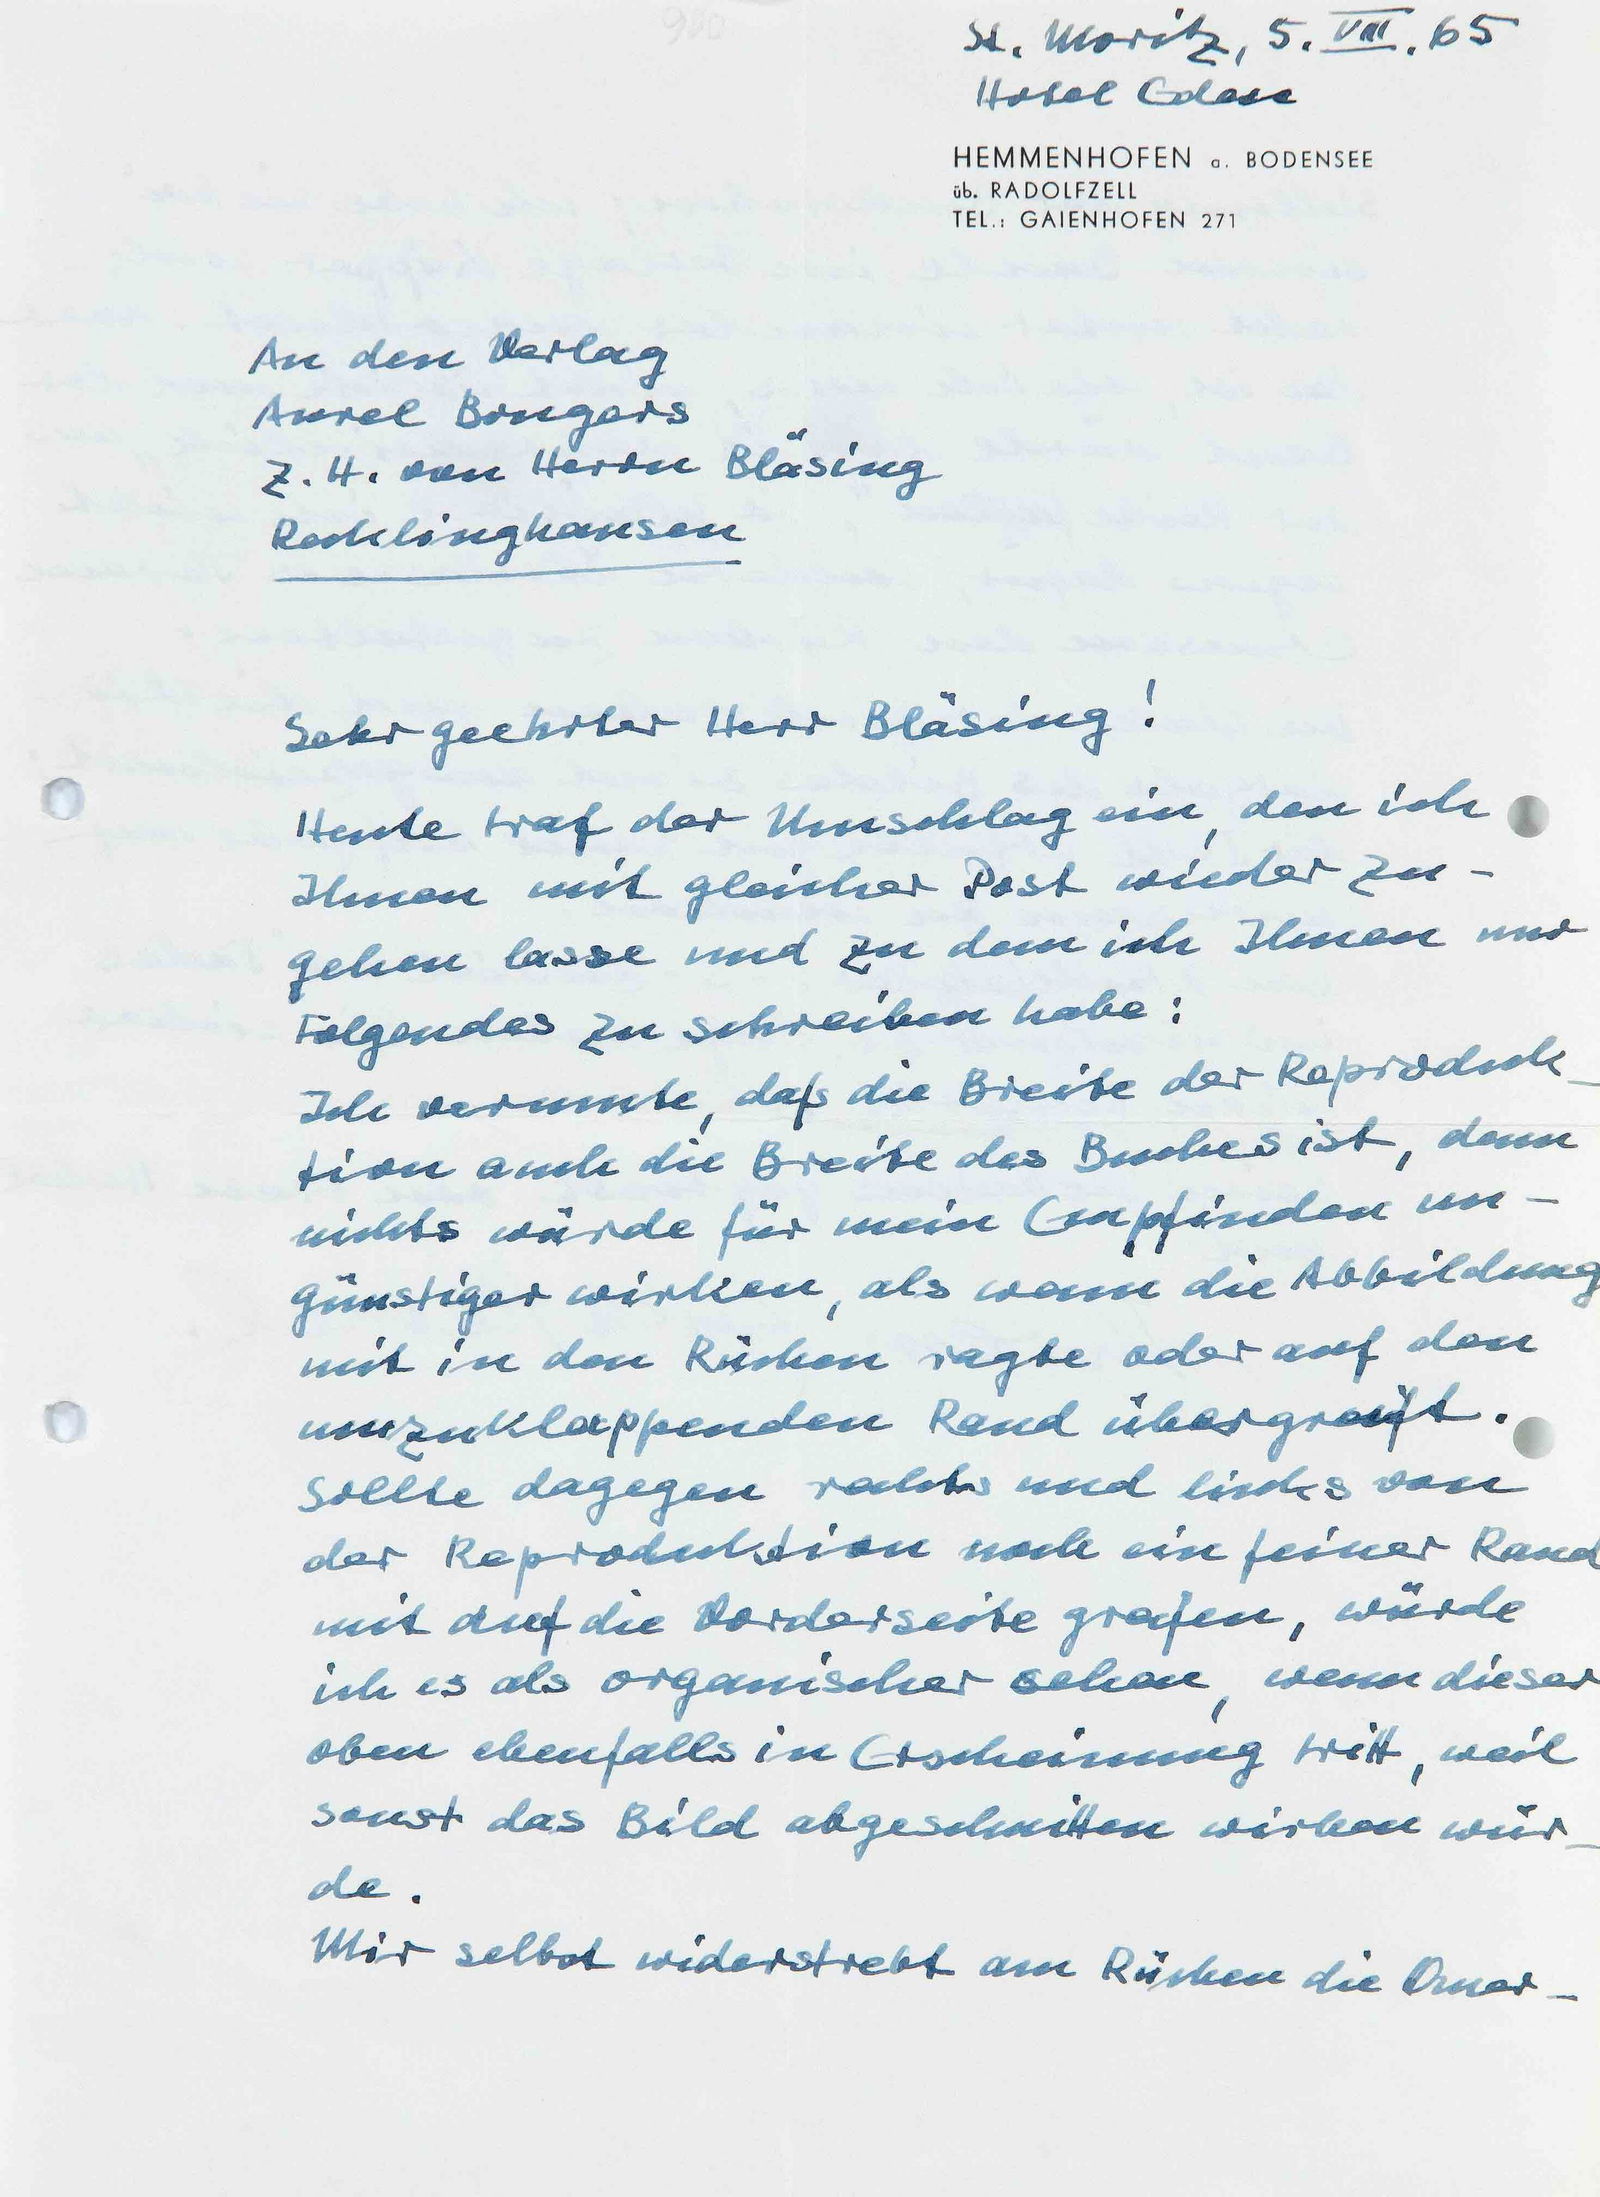 St. Moritz, 5. VIII. 65
Hotel Edau
HEMMENHOFEN a. BODENSEE
üb. RADOLFZELL
TEL.: GAIENHOFEN 271
An den Verlag
Aurel Bongers
z. H. von Herrn Bläsing
Recklinghausen
Sehr geehrter Herr Bläsing!
Heute traf der Umschlag ein, den ich
Ihnen mit gleicher Post wieder zu-
gehen lasse und zu dem ich Ihnen nur
Folgendes zu schreiben habe:
Ich vermute, daß die Breite der Reproduk-
tion auch die Breite des Buches ist, denn
nichts würde für mein Empfinden un-
günstiger wirken, als wenn die Abbildung
mit in den Rücken ragte oder auf den
umzuklappenden Rand übergreift.
Sollte dagegen rechts und links von
der Reproduktion noch ein feiner Rand
mit auf die Vorderseite greifen, würde
ich es als organischer sehen, wenn dieser
oben ebenfalls in Erscheinung tritt, weil
sonst das Bild abgeschnitten wirken wür-
de.
Mir selbst widerstrebt am Rücken die Quer-